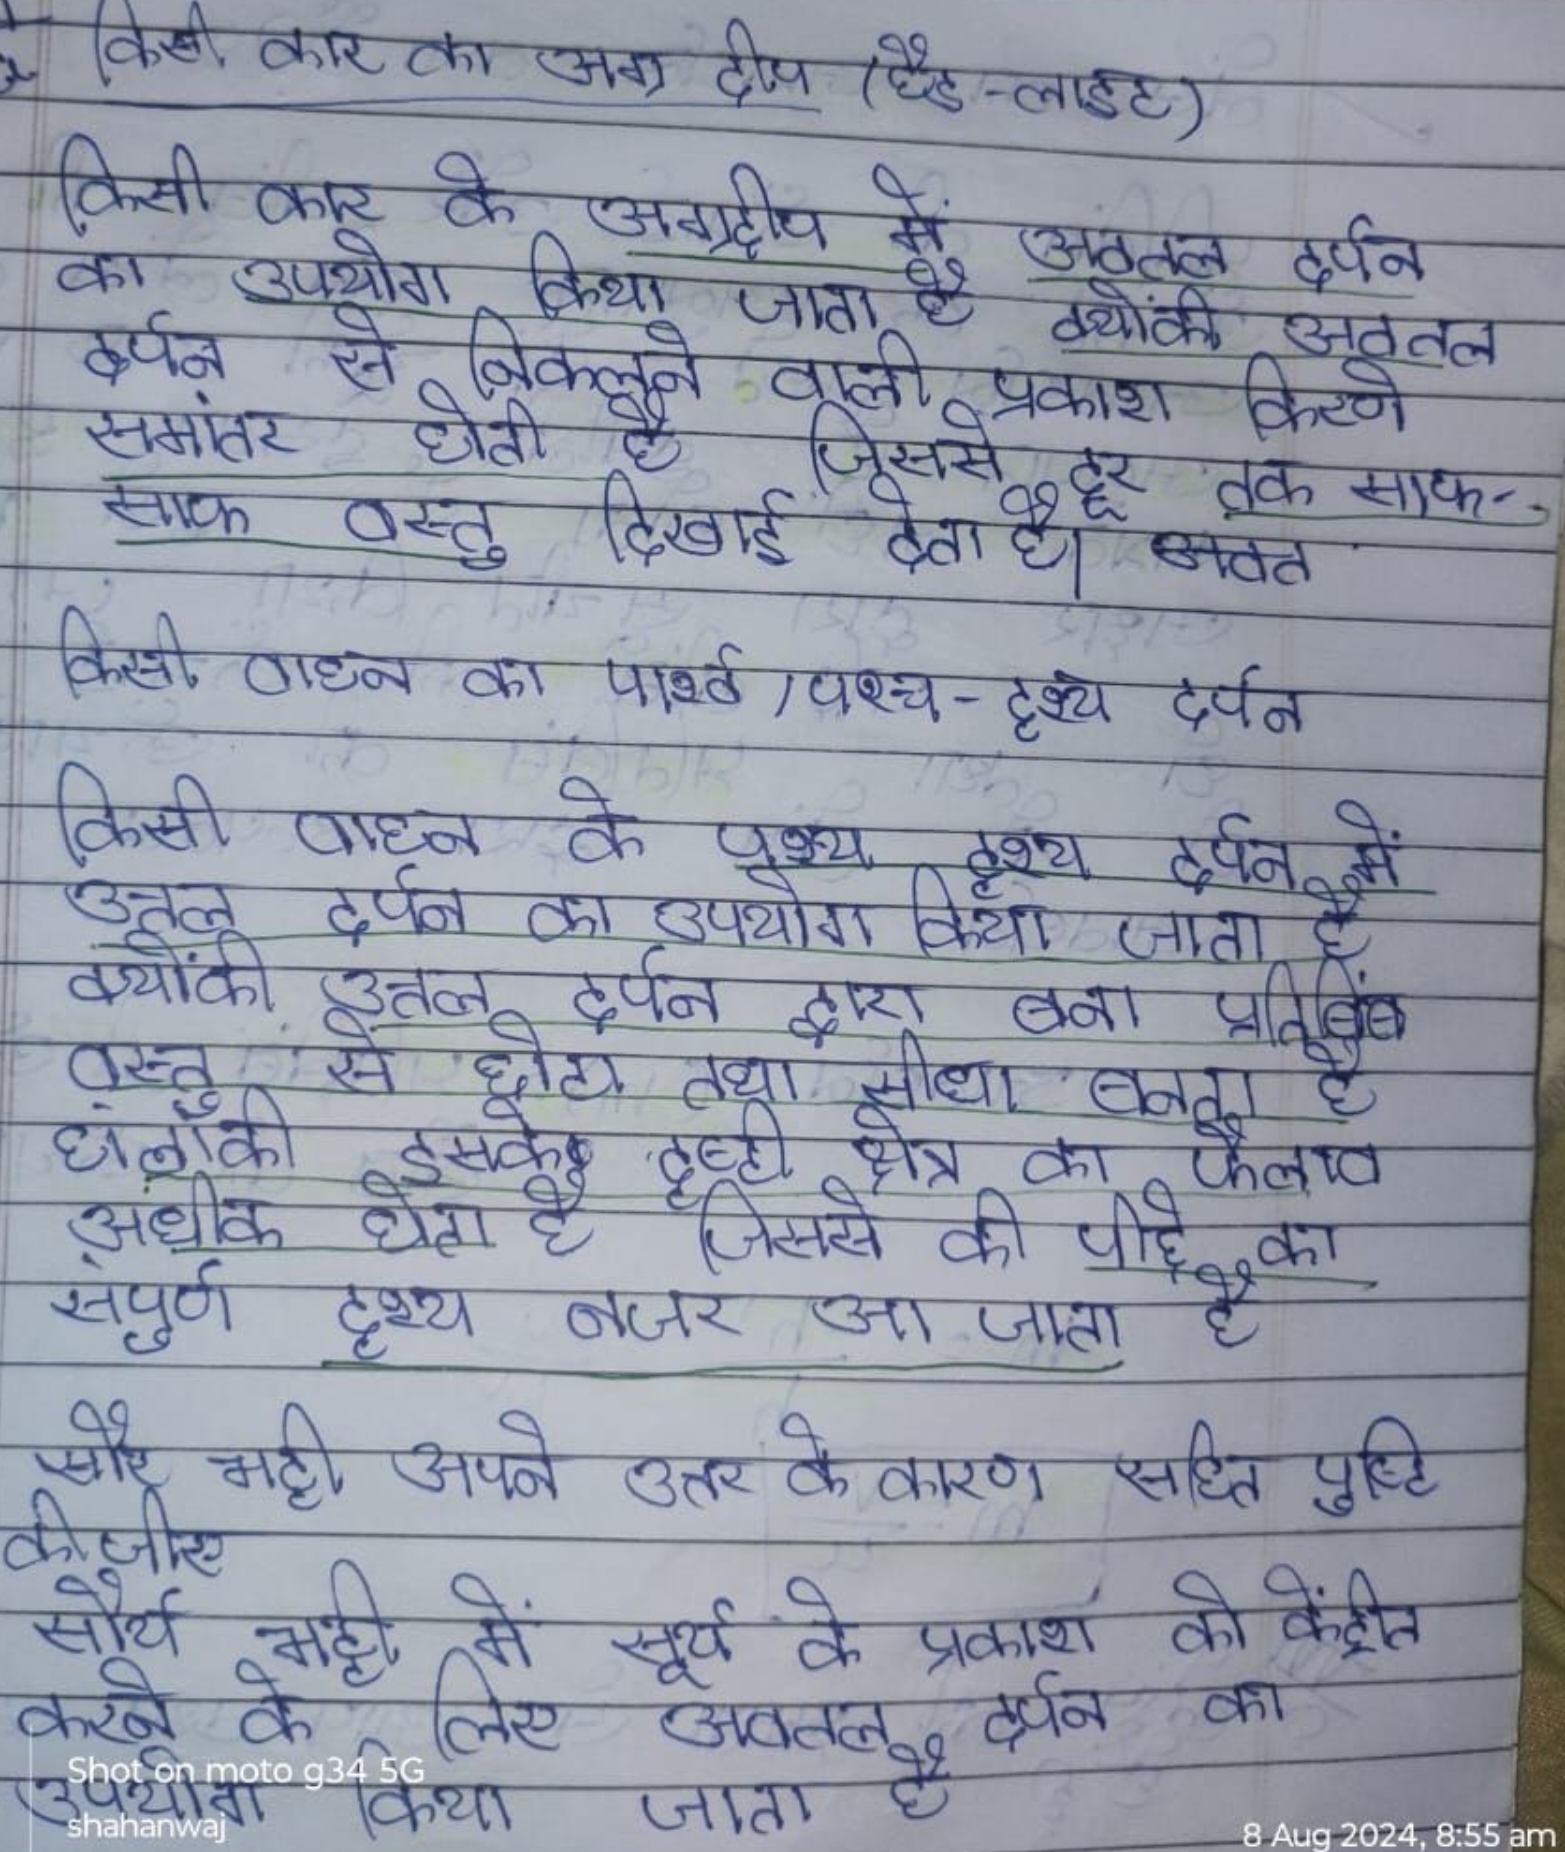 किसी कार का अग्र दीप (हैड-लाईट)
किसी कार के अग्रद्वीप में अवतल दर्पन
का उपयोग किया जाता है क्योंकी अवतल
दर्पन से निकलने वाली प्रकाश किरणे
समांतर होती है जिससे दूर तक साफ-
साफ वस्तु दिखाई देता है। अवत
किसी वाहन का पार्श्व /पश्च-दृश्य दर्पन
किसी वाहन के पृश्य दृश्य दर्पन में
उत्तल दर्पन का उपयोग किया जाता है
क्योंकी उत्तल दर्पन द्वारा बना प्रतिबिंब
वस्तु से छोटा तथा सीधा बनता है
हालाँकी इसके दृष्टी क्षेत्र का फैलाव
अधीक होता है जिससे की पीछे का
संपुर्ण दृश्य नजर आ जाता है
सौर भट्टी अपने उत्तर के कारण सहित पुष्टि
कीजीए
सौर्य भट्टी में सूर्य के प्रकाश को केंद्रीत
करने के लिए अवतल दर्पन का
उपयोग किया जाता है
Shot on moto g34 5G
shahanwaj
8 Aug 2024, 8:55 am